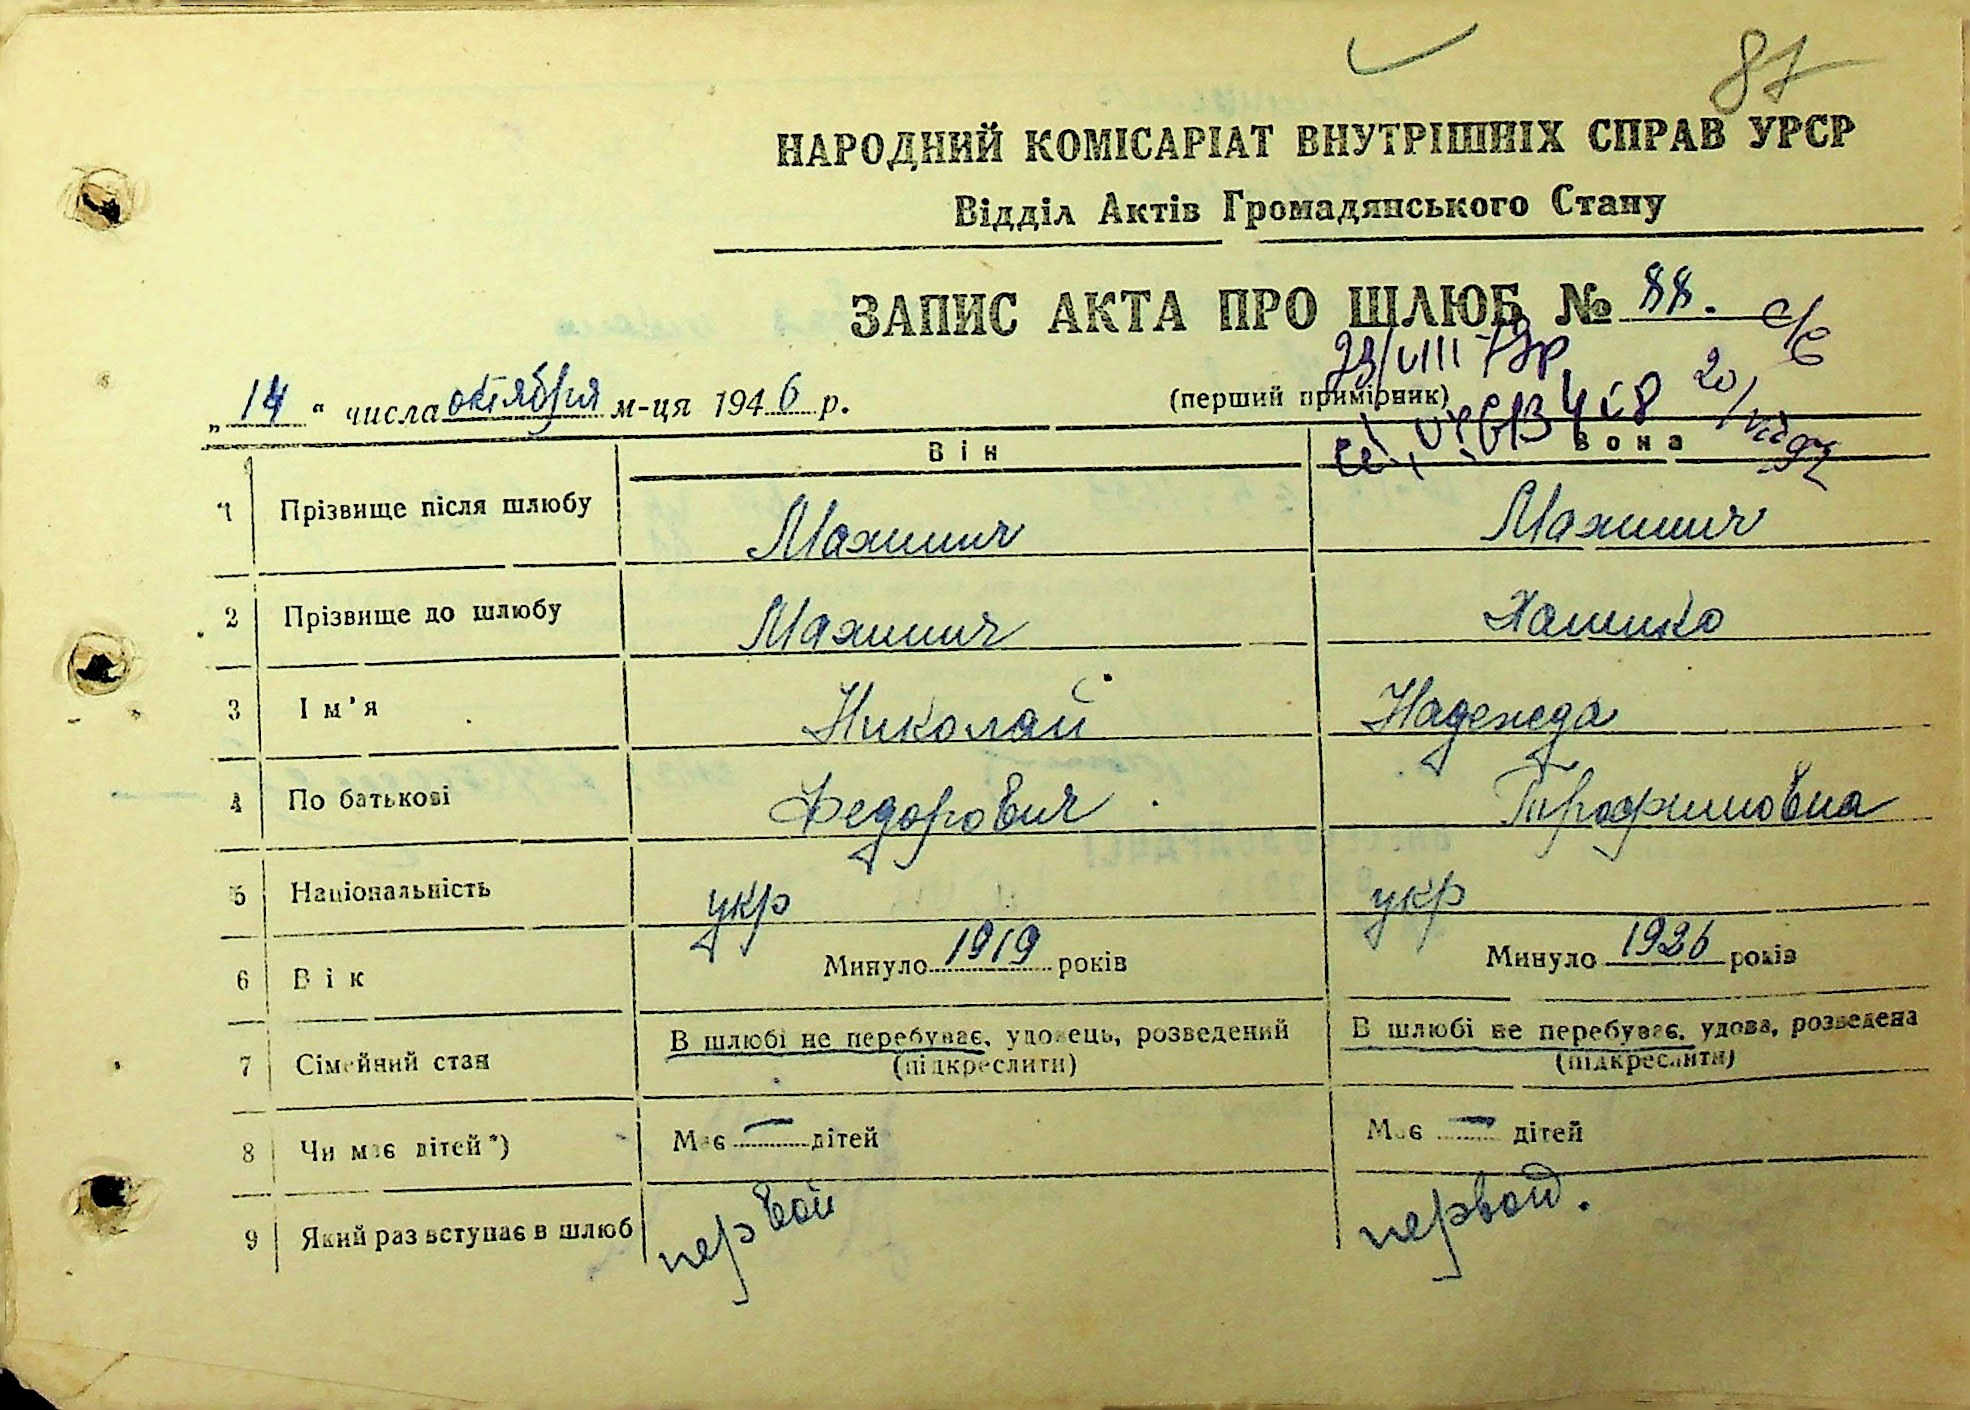 87
НАРОДНИЙ КОМІСАРІАТ ВНУТРІШНІХ СПРАВ УРСР
Відділ Актів Громадянського Стану
ЗАПИС АКТА ПРО ШЛЮБ № 88.
„14“ числа октября м-ця 1946 р.
(перший примірник)
Він Вона
1 Прізвище після шлюбу Махинич Махинич
2 Прізвище до шлюбу Махинич
3 Ім'я Николай Надежда
4 По батькові Федорович Трофимовна
5 Національність укр укр
6 Вік Минуло 1919 років Минуло 1926 років
7 Сімейний стан В шлюбі не перебуває, удовець, розведений В шлюбі не перебуває, удова, розведена
(підкреслити) (підкреслити)
8 Чи має дітей*) Має — дітей Має — дітей
9 Який раз вступає в шлюб первой первой.